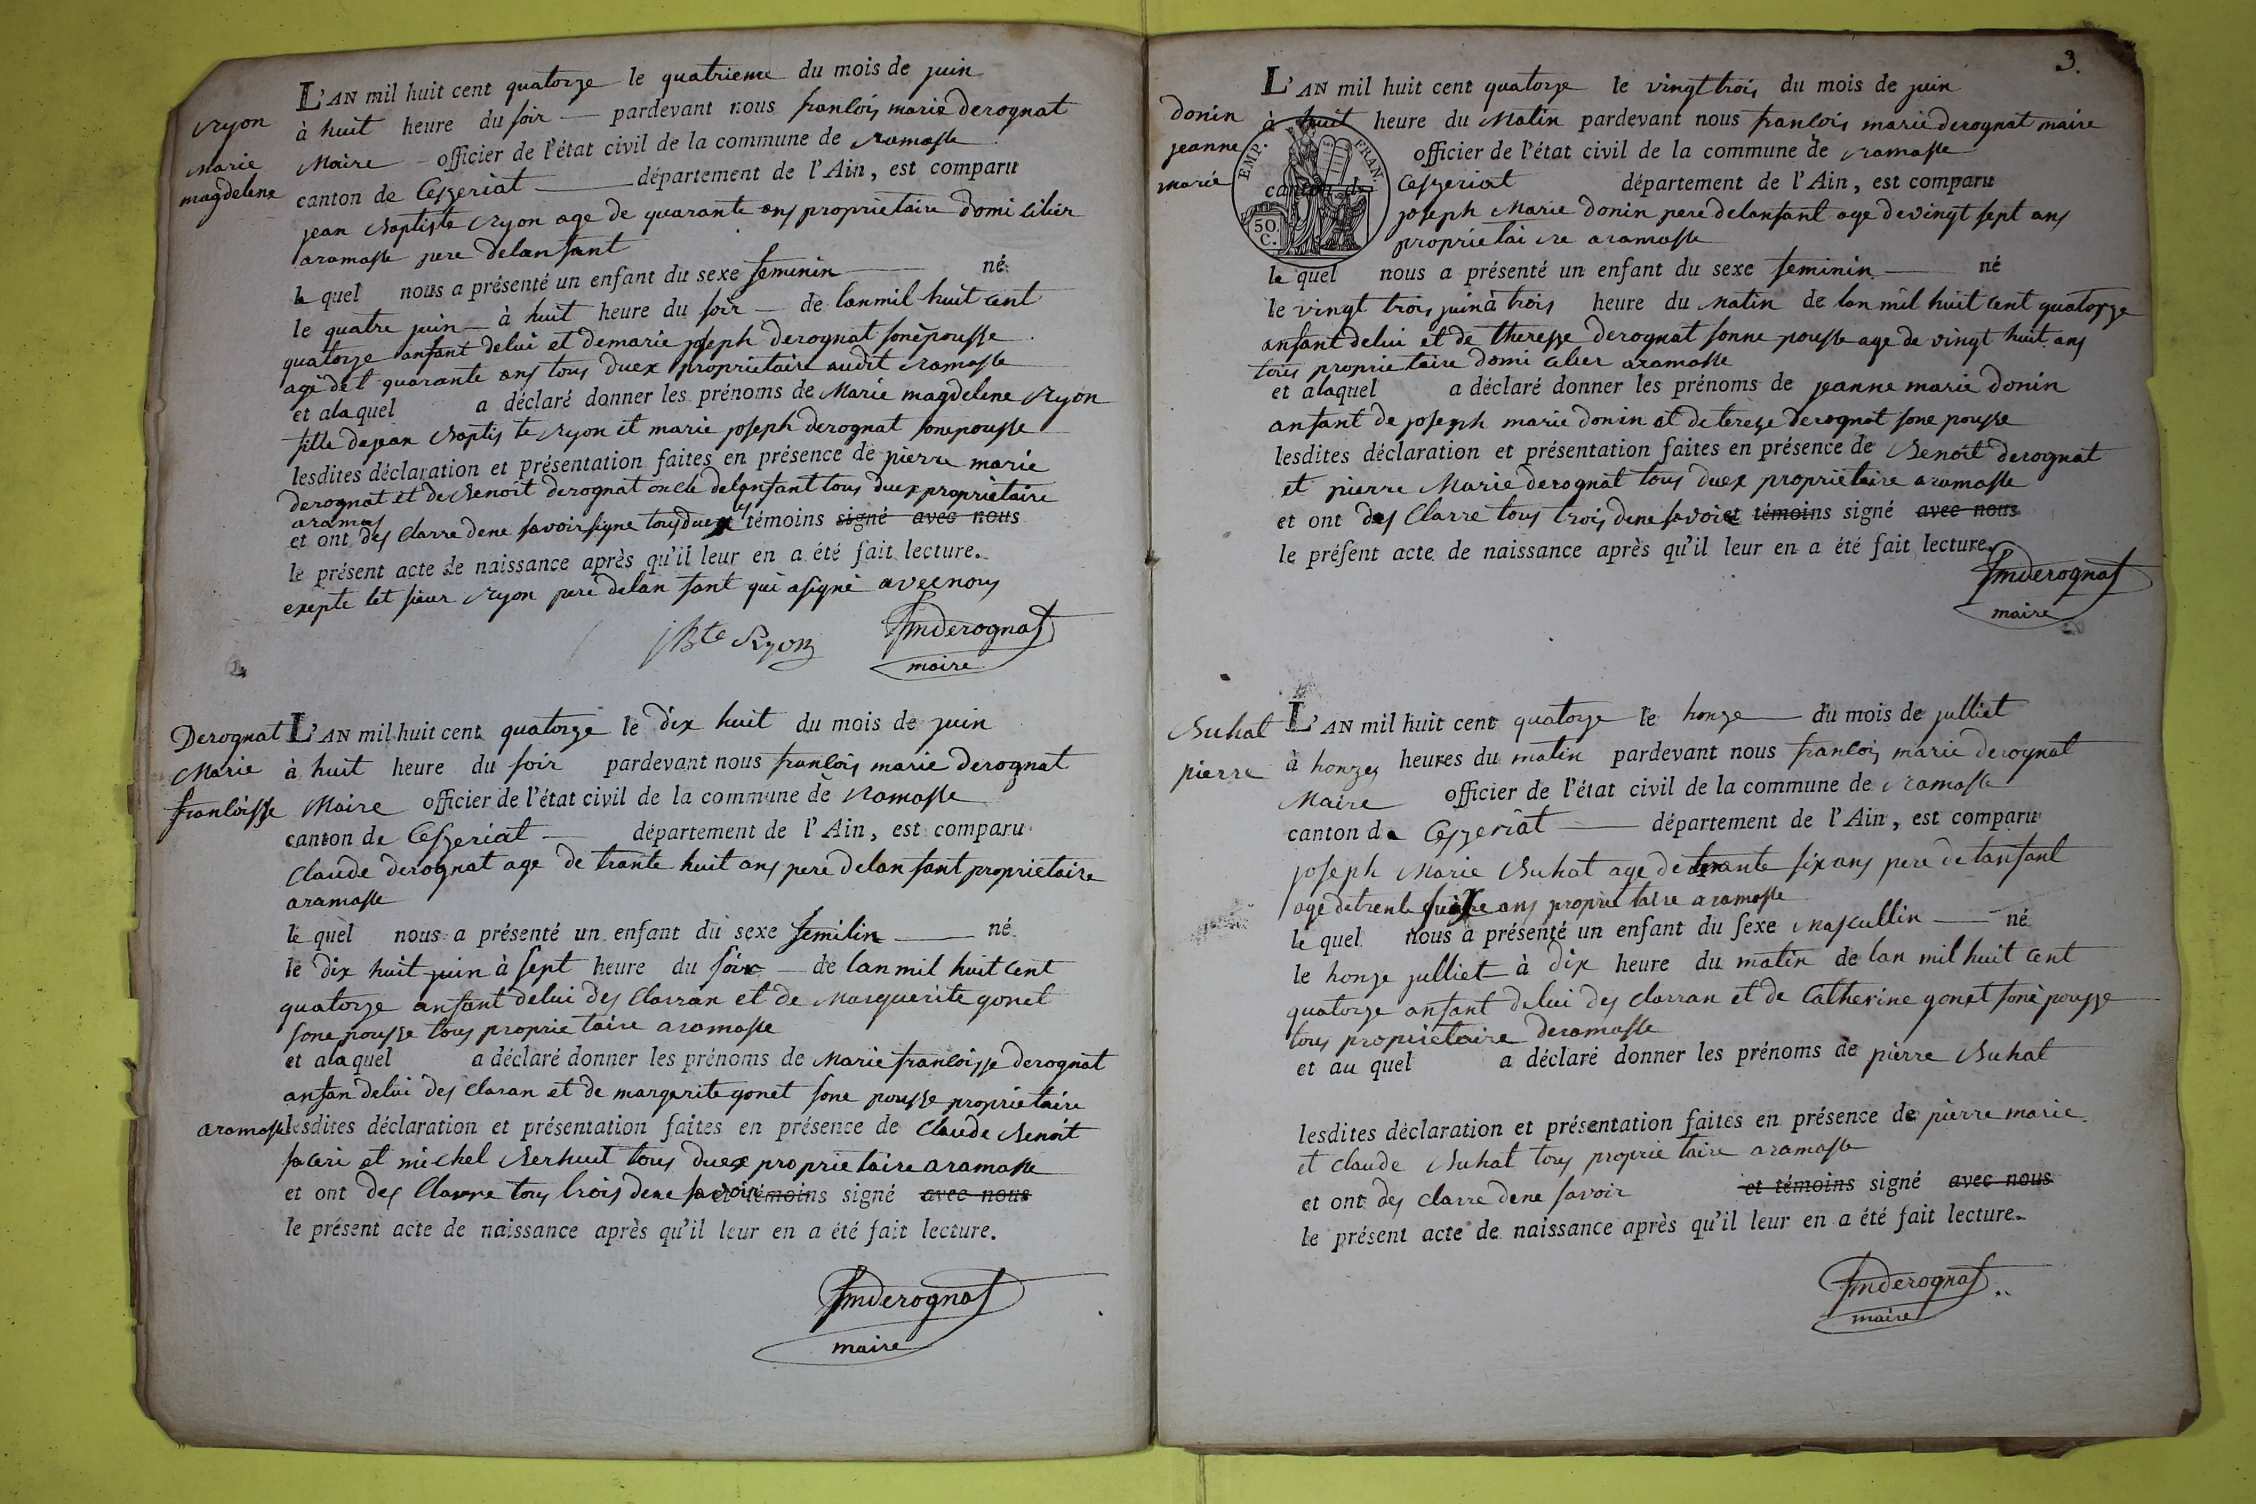 Ryon
marie
magdelene
L'AN mil huit cent quatorze le quatrieme du mois de juin
à huit heure du soir pardevant nous francois marie derognat
Maire officier de l'état civil de la commune de ramasse
canton de Ceszeriat département de l'Ain, est comparu
jean Baptiste Ryon age de quarante ans proprietaire domi cilier
aramasse pere delanfant
le quel nous a présenté un enfant du sexe feminin né
le quatre juin à huit heure du soir de lanmil huit cent
quatorze anfant delui et demarie joseph derognat sonépousse
age det quarante ans tous duex proprietaire audit ramasse
et ala quel a déclaré donner les prénoms de Marie magdelene Ryon
fille dejean Baptis te Ryon et marie joseph derognat sonepousse
lesdites déclaration et présentation faites en présence de pierre marie
derognat et de Benoit derognat oncle delanfant tous duex proprietaire
aramas
et ont des Clarre dene savoir signe tous duex témoins signé avec nous
le présent acte de naissance après qu'il leur en a été fait lecture.
exepte let sieur Ryon pere delan fant qui asigné avec nous
jBte Ryon fmderognat
maire
Derognat
Marie
francoisse
L'AN mil huit cent quatorze le dix huit du mois de juin
à huit heure du soir pardevant nous francois marie derognat
Maire officier de l'état civil de la commune de Ramasse
canton de Ceszeriat département de l'Ain, est comparu
Claude derognat age de trante huit ans pere delan fant proprietaire
aramasse
le quel nous a présenté un enfant du sexe femilin né
le dix huit juin à sept heure du soir de lanmil huit cent
quatorze anfant delui des Clarran et de Marguerite gonet
sone pousse tous proprie taire aramasse
et ala quel a déclaré donner les prénoms de Marie francoisse derognat
anfan delui des Claran et de margerite gonet sone pousse proprietaire
aramasse lesdites déclaration et présentation faites en présence de Claude Benoit
et michel Berhuit tous duex proprie taire aramasse
et ont des Clarre tous trois dene savoir et témoins signé avec nous
le présent acte de naissance après qu'il leur en a été fait lecture.
fmderognat
maire
3.
donin
jeanne
marie
L'AN mil huit cent quatorze le vingt trois du mois de juin
à huit heure du Matin pardevant nous francois marie derognat maire
officier de l'état civil de la commune de ramasse
canton de Ceszeriat département de l'Ain, est comparu
joseph Marie donin pere delanfant age devingt sept ans
proprietai re aramasse
EMP. FRAN.
50. C.
le quel nous a présenté un enfant du sexe feminin né
le vingt trois juin à trois heure du matin de lan mil huit cent quatorze
anfant delui et de theresse derognat sonne pousse age de vingt huit ans
tous proprie taire domi cilier aramasse
et alaquel a déclaré donner les prénoms de jeanne marie donin
anfant de joseph marie donin et de tereze derognat sone pousse
lesdites déclaration et présentation faites en présence de Benoit derognat
et pierre Marie derognat tous duex proprietaire aramasse
et ont des Clarre tous trois dene savoir et témoins signé avec nous
le présent acte de naissance après qu'il leur en a été fait lecture.
fmderognat
maire
Buhat
pierre
L'AN mil huit cent quatorze le honze du mois de julliet
à honzes heures du matin pardevant nous francois marie derognat
Maire officier de l'état civil de la commune de ramasse
canton de Ceszeriat département de l'Ain, est comparu
joseph Marie Buhat age de trante six ans pere delanfant
age detrente ans proprie taire aramasse
le quel nous a présenté un enfant du sexe Mascullin né
le honze julliet à dix heure du matin de lan mil huit cent
quatorze anfant delui des Clarran et de Catherine gonet soné pousse
tous proprietaire deramasse
et au quel a déclaré donner les prénoms de pierre Buhat
lesdites déclaration et présentation faites en présence de pierre marie
et Claude Buhat tous proprie taire aramasse
et ont des Clarre dene savoir et témoins signé avec nous
le présent acte de naissance après qu'il leur en a été fait lecture.
fmderognat
maire